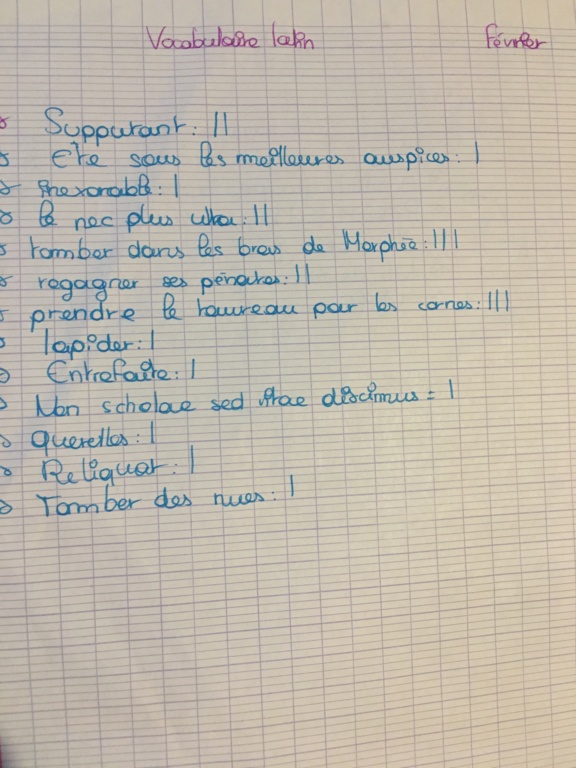 Vocabulaire latin Février
Suppurant : ||
Etre sous les meilleures auspices : |
Inexorable : |
le nec plus ultra : ||
tomber dans les bras de Morphée : |||
regagner ses pénates : ||
prendre le taureau par les cornes : |||
lapider : |
Entrefaite : |
Non scholae sed vitae discimus = |
querelles : |
Reliquat : |
Tomber des nues : |